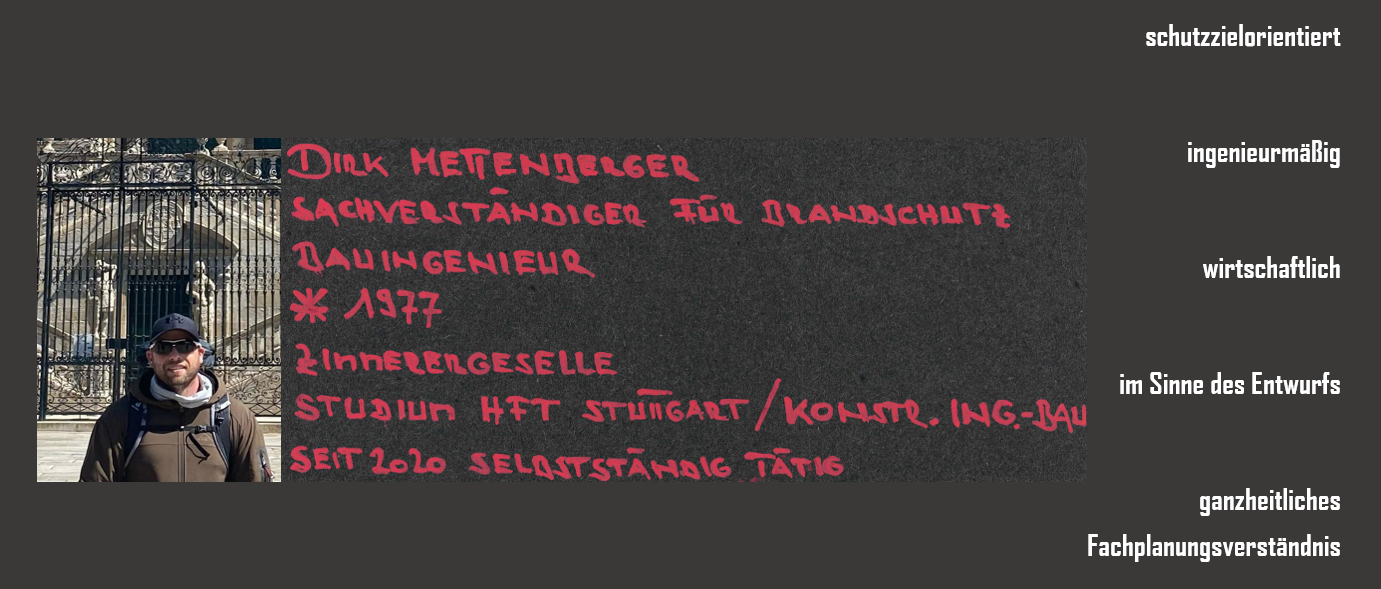 DIRK METTENBERGER
SACHVERSTÄNDIGER FÜR BRANDSCHUTZ
BAUINGENIEUR
* 1977
ZIMMERERGESELLE
STUDIUM HFT STUTTGART / KONSTR. ING.-BAU
SEIT 2020 SELBSTSTÄNDIG TÄTIG
schutzzielorientiert
ingenieurmäßig
wirtschaftlich
im Sinne des Entwurfs
ganzheitliches
Fachplanungsverständnis